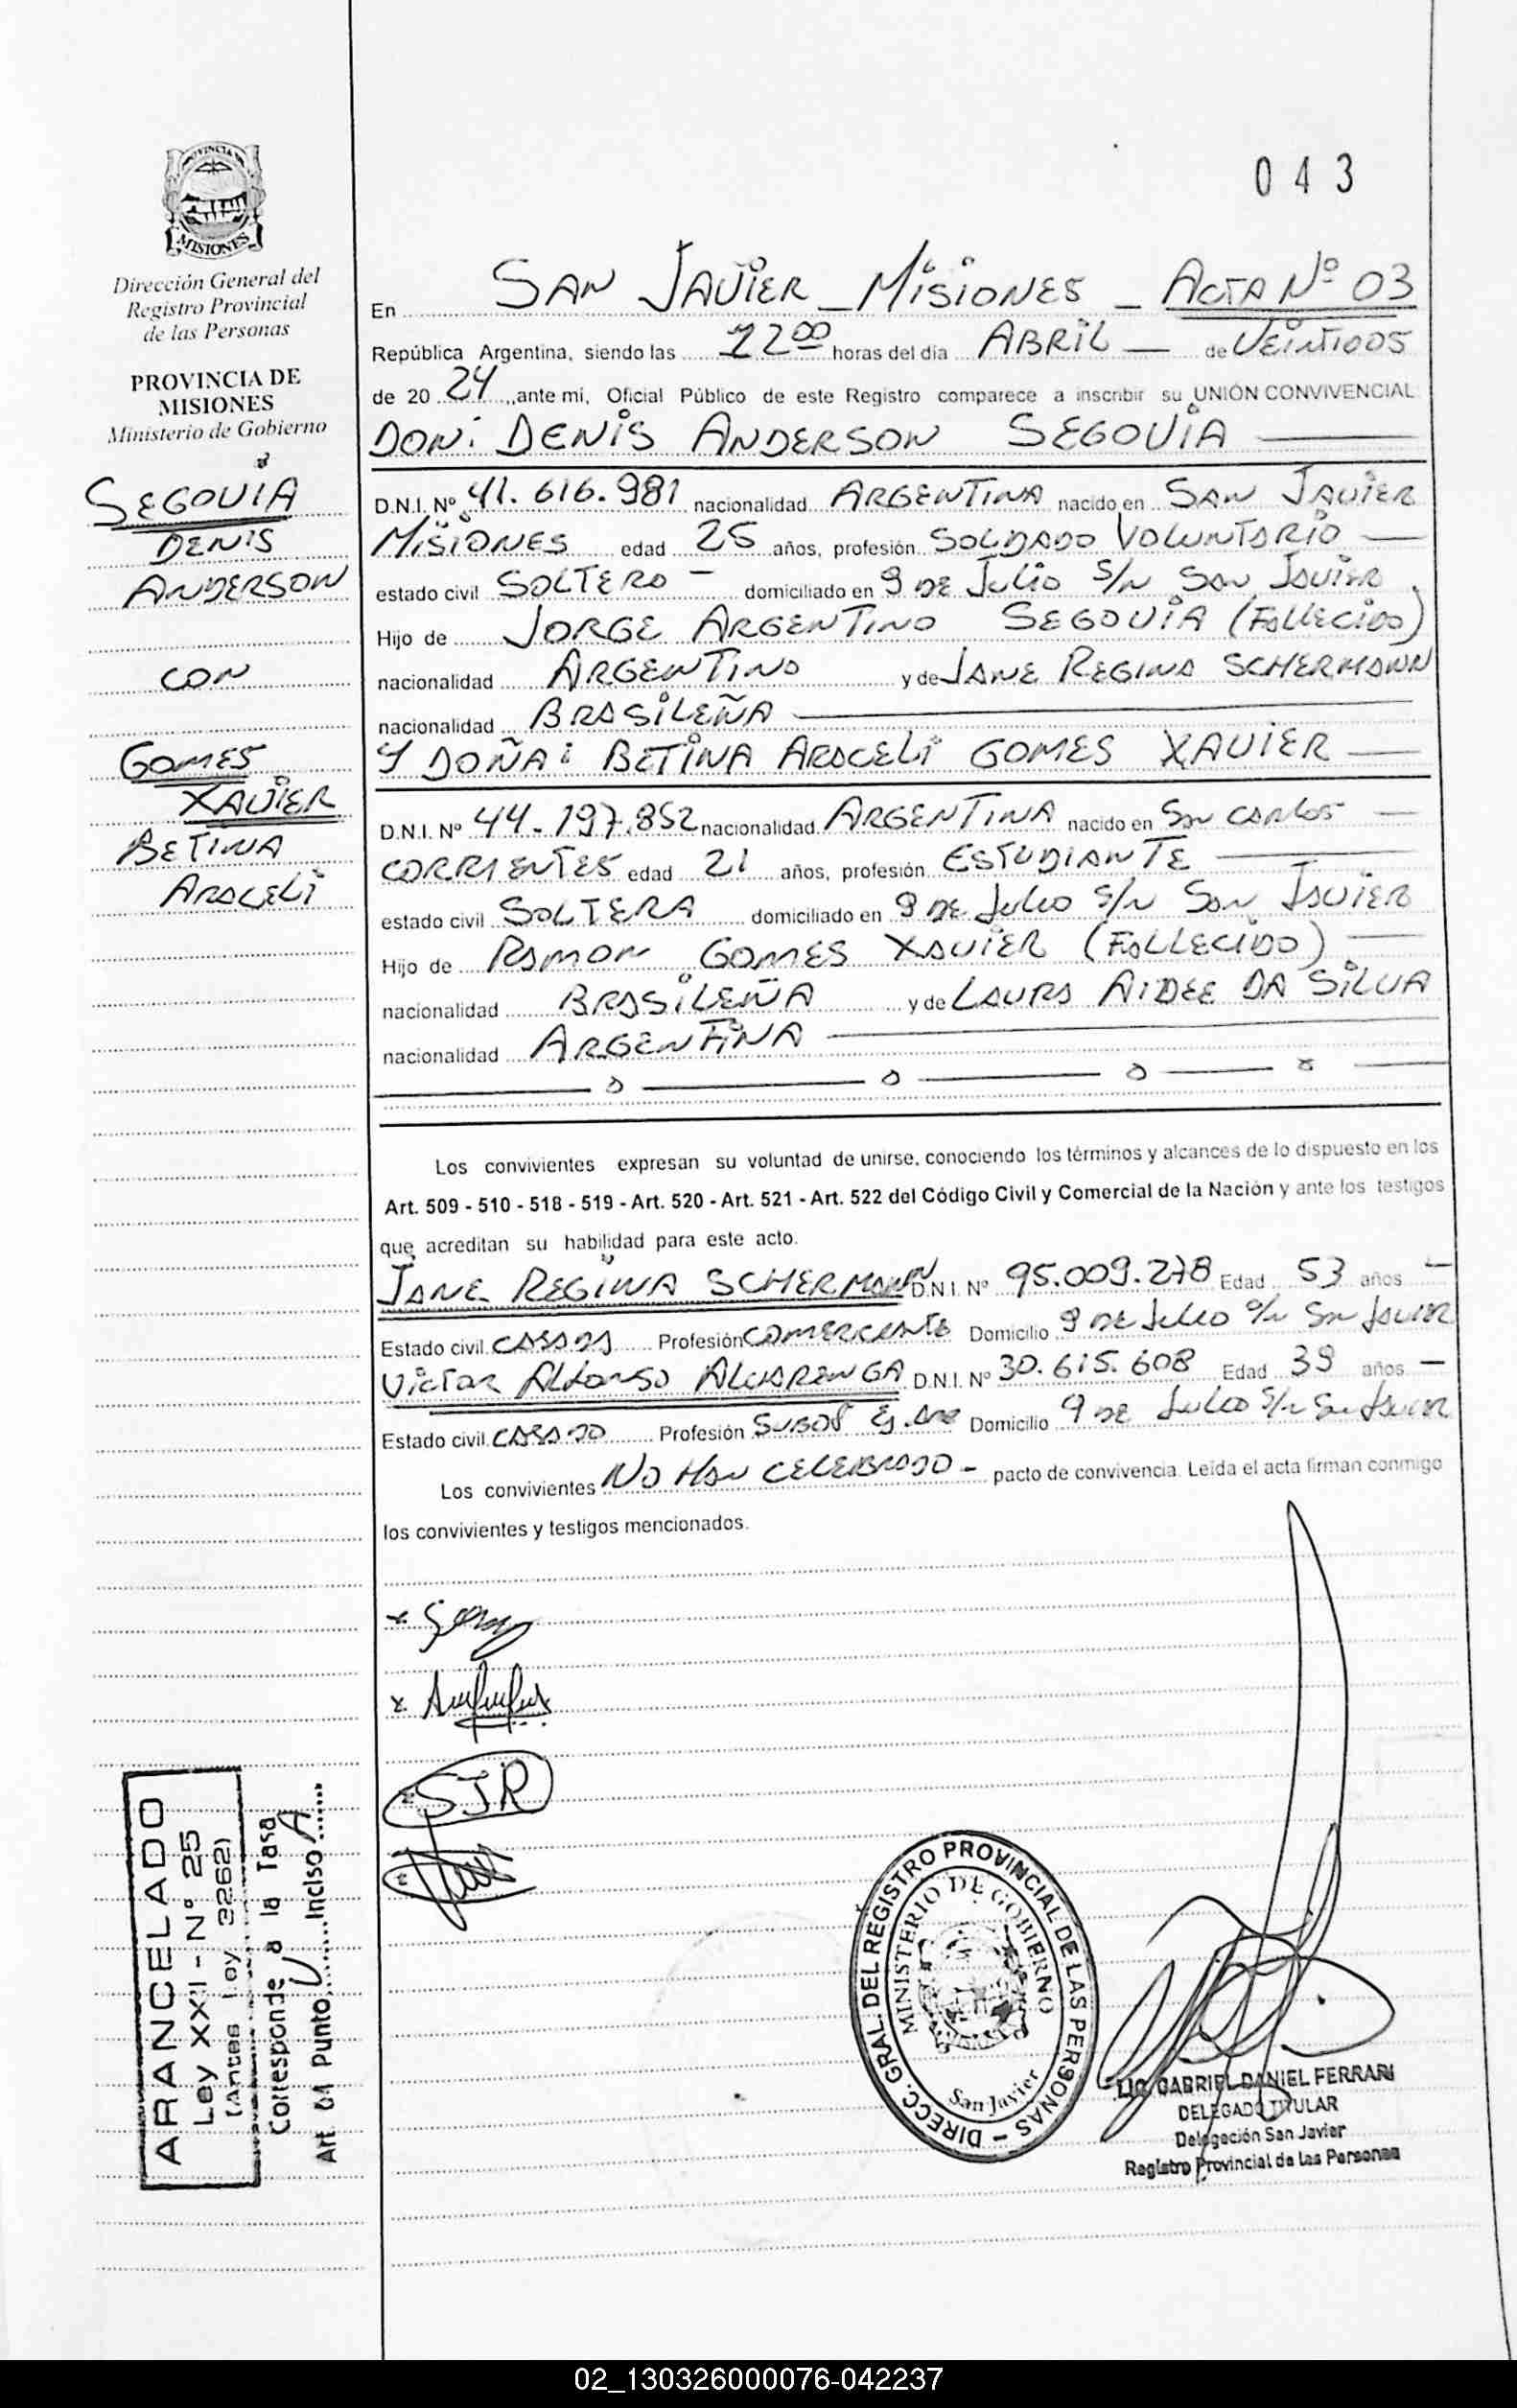 043
PROVINCIA DE
MISIONES
Dirección General del
Registro Provincial
de las Personas
PROVINCIA DE
MISIONES
Ministerio de Gobierno
SEGOVIA
DENIS
ANDERSON
CON
GOMES
XAVIER
BETINA
ARACELI
En SAN JAVIER - MISIONES - ACTA Nº 03
República Argentina, siendo las 1200 horas del día ABRIL — de VEINTIDOS
de 20 24 ,,ante mi, Oficial Público de este Registro comparece a inscribir su UNIÓN CONVIVENCIAL
DON: DENIS ANDERSON SEGOVIA
D.N.I. Nº 41.616.981 nacionalidad ARGENTINA nacido en SAN JAVIER
MISIONES edad 25 años, profesión SOLDADO VOLUNTARIO —
estado civil SOLTERO - domiciliado en 9 DE JULIO S/N SAN JAVIER
Hijo de JORGE ARGENTINO SEGOVIA (FALLECIDO)
nacionalidad ARGENTINO y de JANE REGINA SCHERMANN
nacionalidad BRASILEÑA
Y DOÑA: BETINA ARACELI GOMES XAVIER —
D.N.I. Nº 44.197.852 nacionalidad ARGENTINA nacido en SAN CARLOS —
CORRIENTES edad 21 años, profesión ESTUDIANTE
estado civil SOLTERA domiciliado en 9 DE JULIO S/N SAN JAVIER
Hijo de RAMON GOMES XAVIER (FALLECIDO) —
nacionalidad BRASILEÑA y de LAURA AIDEE DA SILVA
nacionalidad ARGENTINA
Los convivientes expresan su voluntad de unirse, conociendo los términos y alcances de lo dispuesto en los
Art. 509 - 510 - 518 - 519 - Art. 520 - Art. 521 - Art. 522 del Código Civil y Comercial de la Nación y ante los testigos
que acreditan su habilidad para este acto.
JANE REGINA SCHERMANN D.N.I. Nº 95.009.278 Edad 53 años -
Estado civil CASADA Profesión COMERCIANTE Domicilio 9 DE JULIO S/N SAN JAVIER
VICTOR ALFONSO ALVARENGA D.N.I. Nº 30.615.608 Edad 39 años -
Estado civil CASADO Profesión SUBOF Ej. Domicilio 9 DE JULIO S/N SAN JAVIER
Los convivientes NO HAN CELEBRADO - pacto de convivencia. Leída el acta firman conmigo
los convivientes y testigos mencionados.
SJR
ARANCELADO
Ley XXII - Nº 25
(Antes Ley 3262)
Corresponde a la Tasa
Art. 01 Punto Inciso A
DIRECC. GRAL. DEL REGISTRO PROVINCIAL DE LAS PERSONAS –
MINISTERIO DE GOBIERNO
San Javier
LIC. GABRIEL DANIEL FERRARI
DELEGADO TITULAR
Delegación San Javier
Registro Provincial de las Personas
02_130326000076-042237